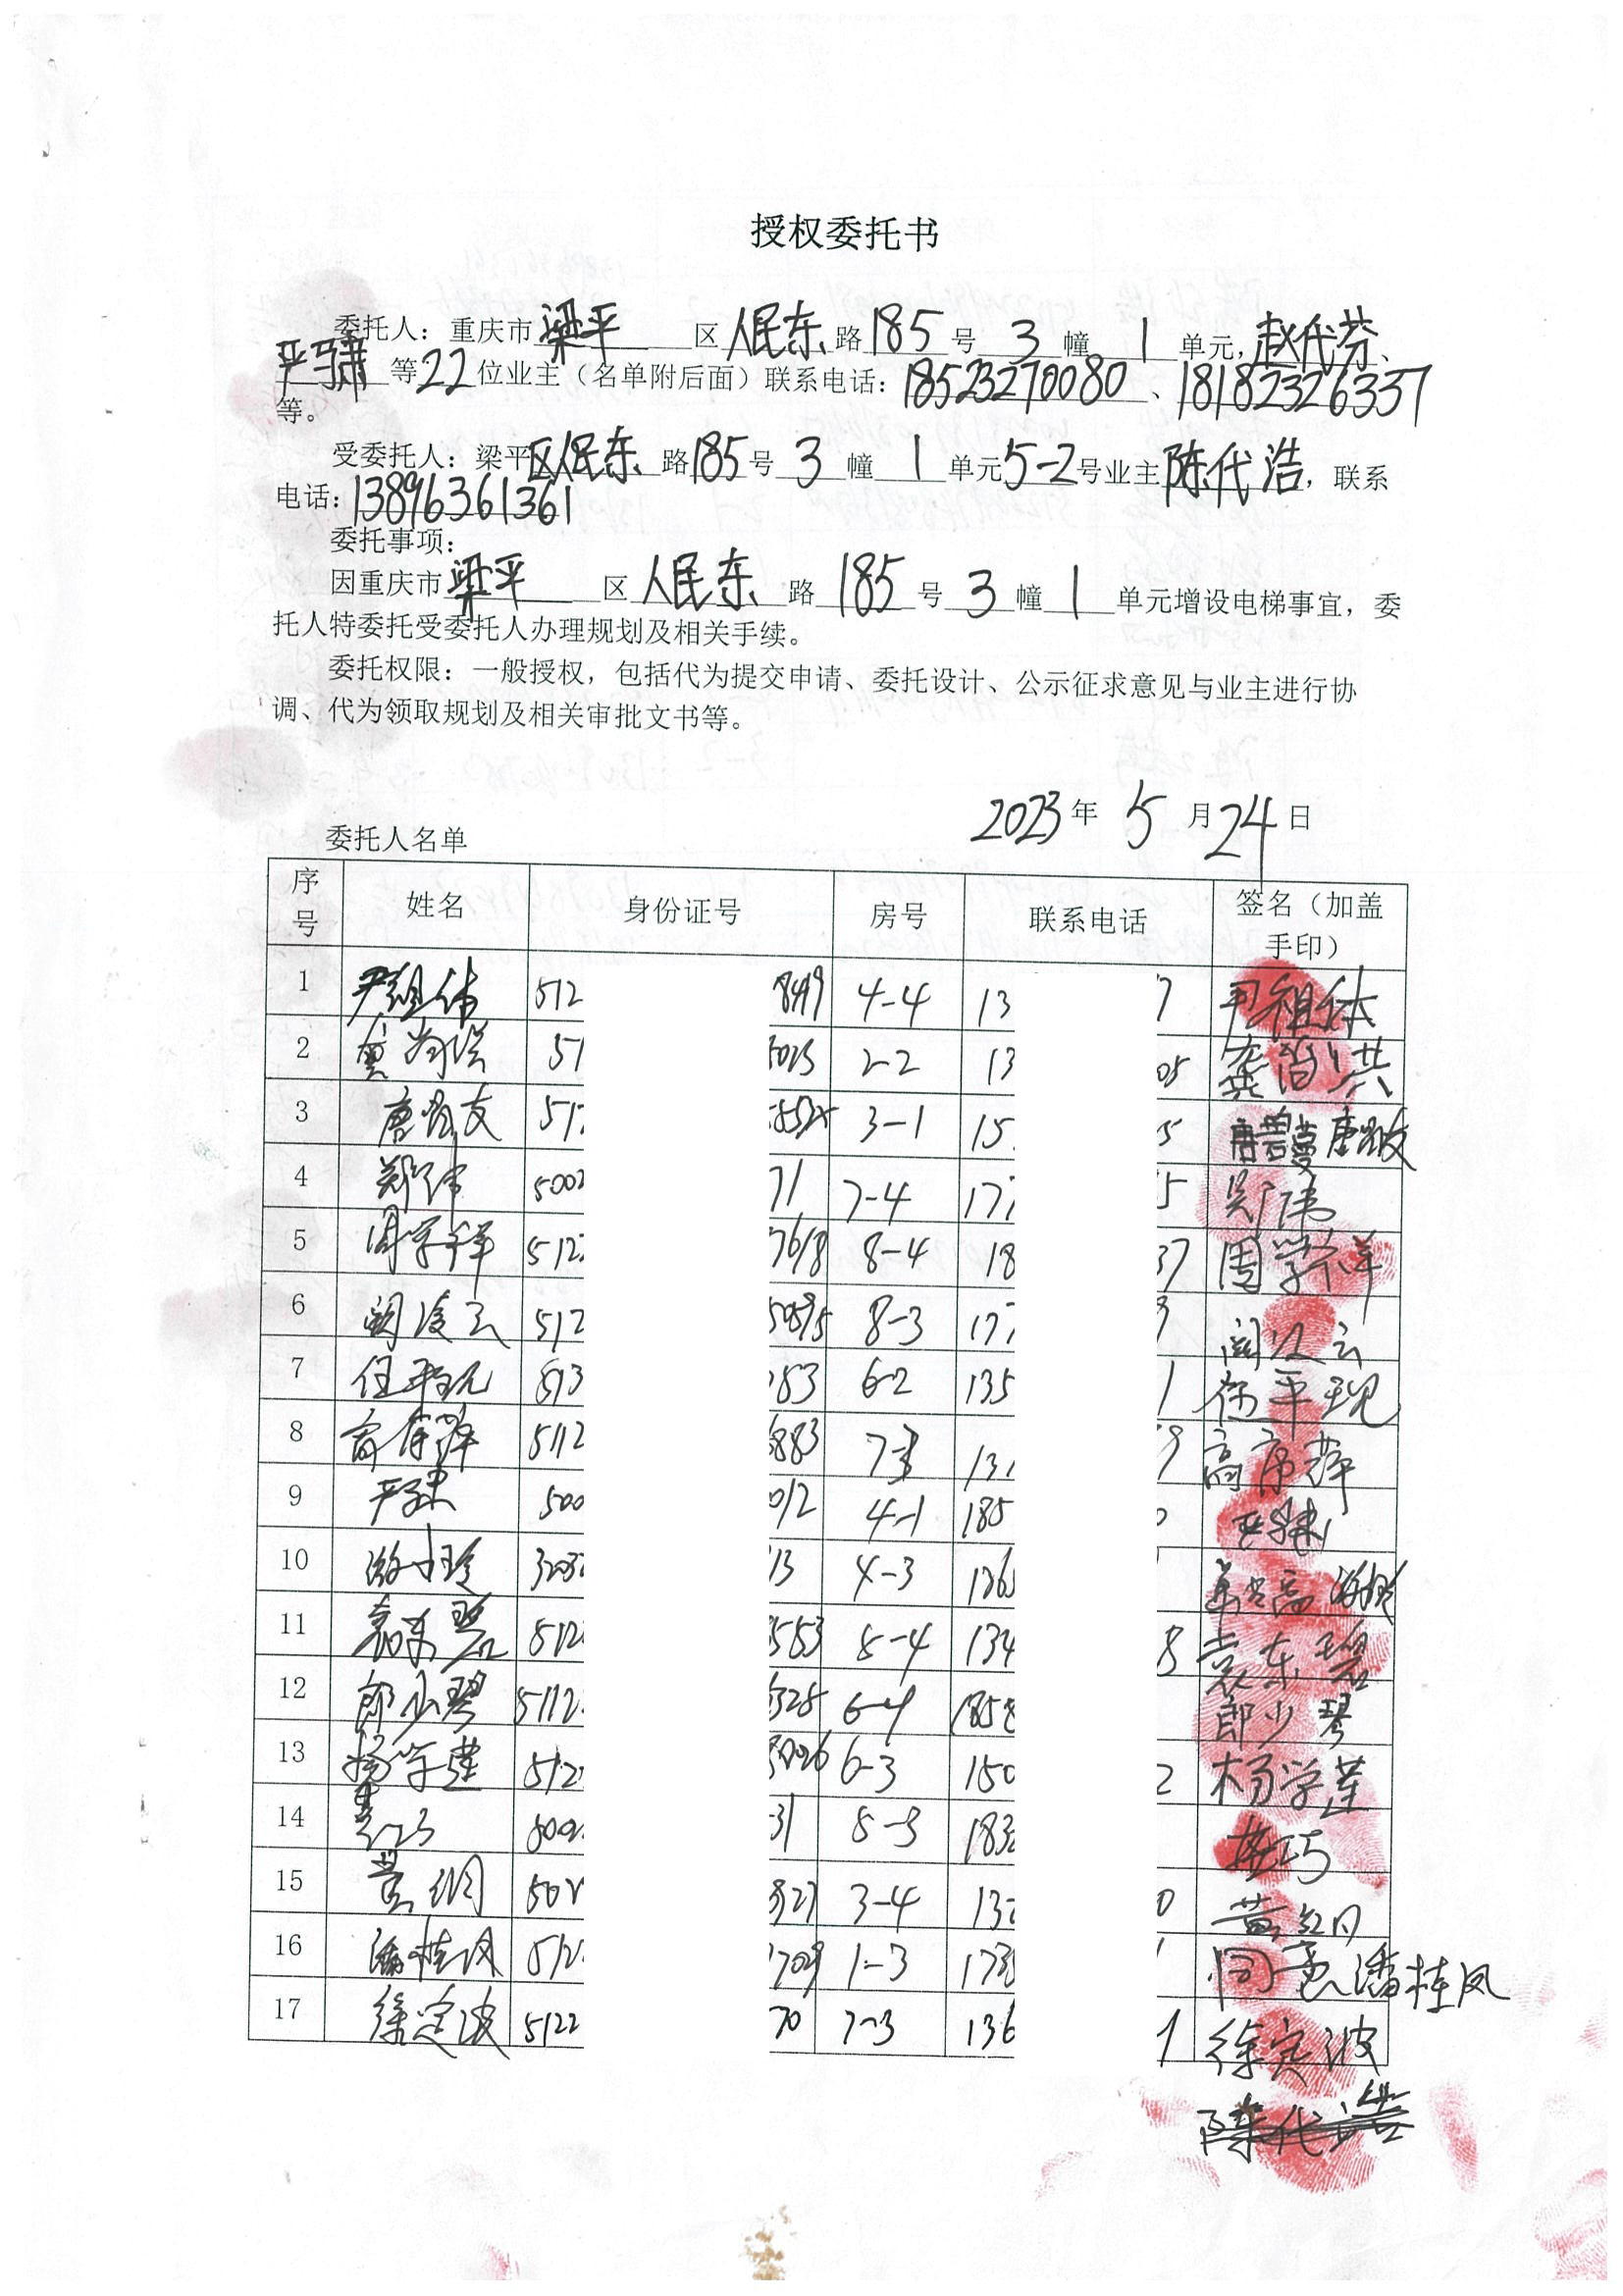 授权委托书
委托人：重庆市梁平区人民东路185号3幢1单元，赵代芬、
严骕等22位业主（名单附后面）联系电话：18523270080、18182326337
等。
受委托人：梁平区人民东路185号3幢1单元5-2号业主陈代浩，联系
电话：13896361361
委托事项：
因重庆市梁平区人民东路185号3幢1单元增设电梯事宜，委
托人特委托受委托人办理规划及相关手续。
委托权限：一般授权，包括代为提交申请、委托设计、公示征求意见与业主进行协
调、代为领取规划及相关审批文书等。
2023年5月24日
委托人名单
序号 姓名 身份证号 房号 联系电话 签名（加盖手印）
1 512 8499 4-4 13 7
2 51 5023 2-2 13 05
3 51 3-1 15 5
4 5002 71 7-4 177 5
5 周学祥 512 7618 8-4 18 37 周学祥
6 512 8-3 177
7 任平现 513 183 6-2 135 1 任平现
8 高席萍 5112 3883 7-3 131 9 高席萍
9 500 012 4-1 185 0
10 3232 13 4-3 136
11 袁东碧 512 553 5-4 134 8 袁东碧
12 郎少琴 5112 328 6-4 1858 郎少琴
13 杨学莲 512 6-3 150 2 杨学莲
14 500 31 5-3 183
15 黄纲 50 327 3-4 13 0
16 潘桂凤 512 1709 1-3 173 同意潘桂凤
17 徐定波 5122 70 7-3 136 1 徐定波
陈代浩